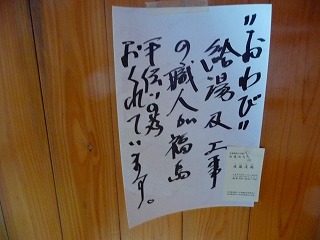 "おわび"
給湯及工事
の職人が福島
手伝いの為
おくれています。